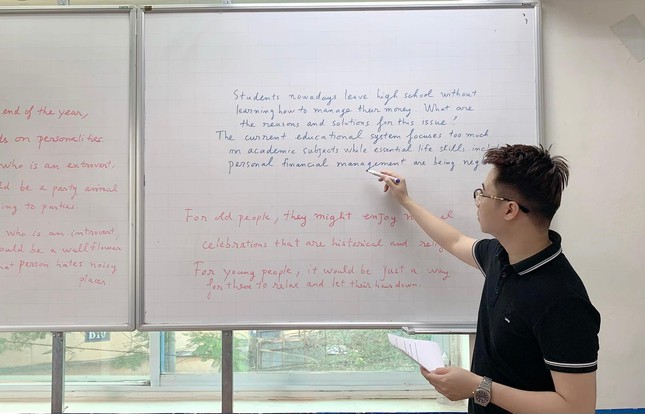 end of the year,
on personalities.
who is an extrovert.
be a party animal
to parties.
who is an introvert,
ould be a wallflower
at person hates noisy
places
Students nowadays leave high school without
learning how to manage their money. What are
the reasons and solutions for this issue?
The current educational system focuses too much
on academic subjects while essential life skills incl
personal financial management are being neg
For old people, they might enjoy
celebrations that are historical and
For young people, it would be just a way
for them to relax and let their hair down.
D10